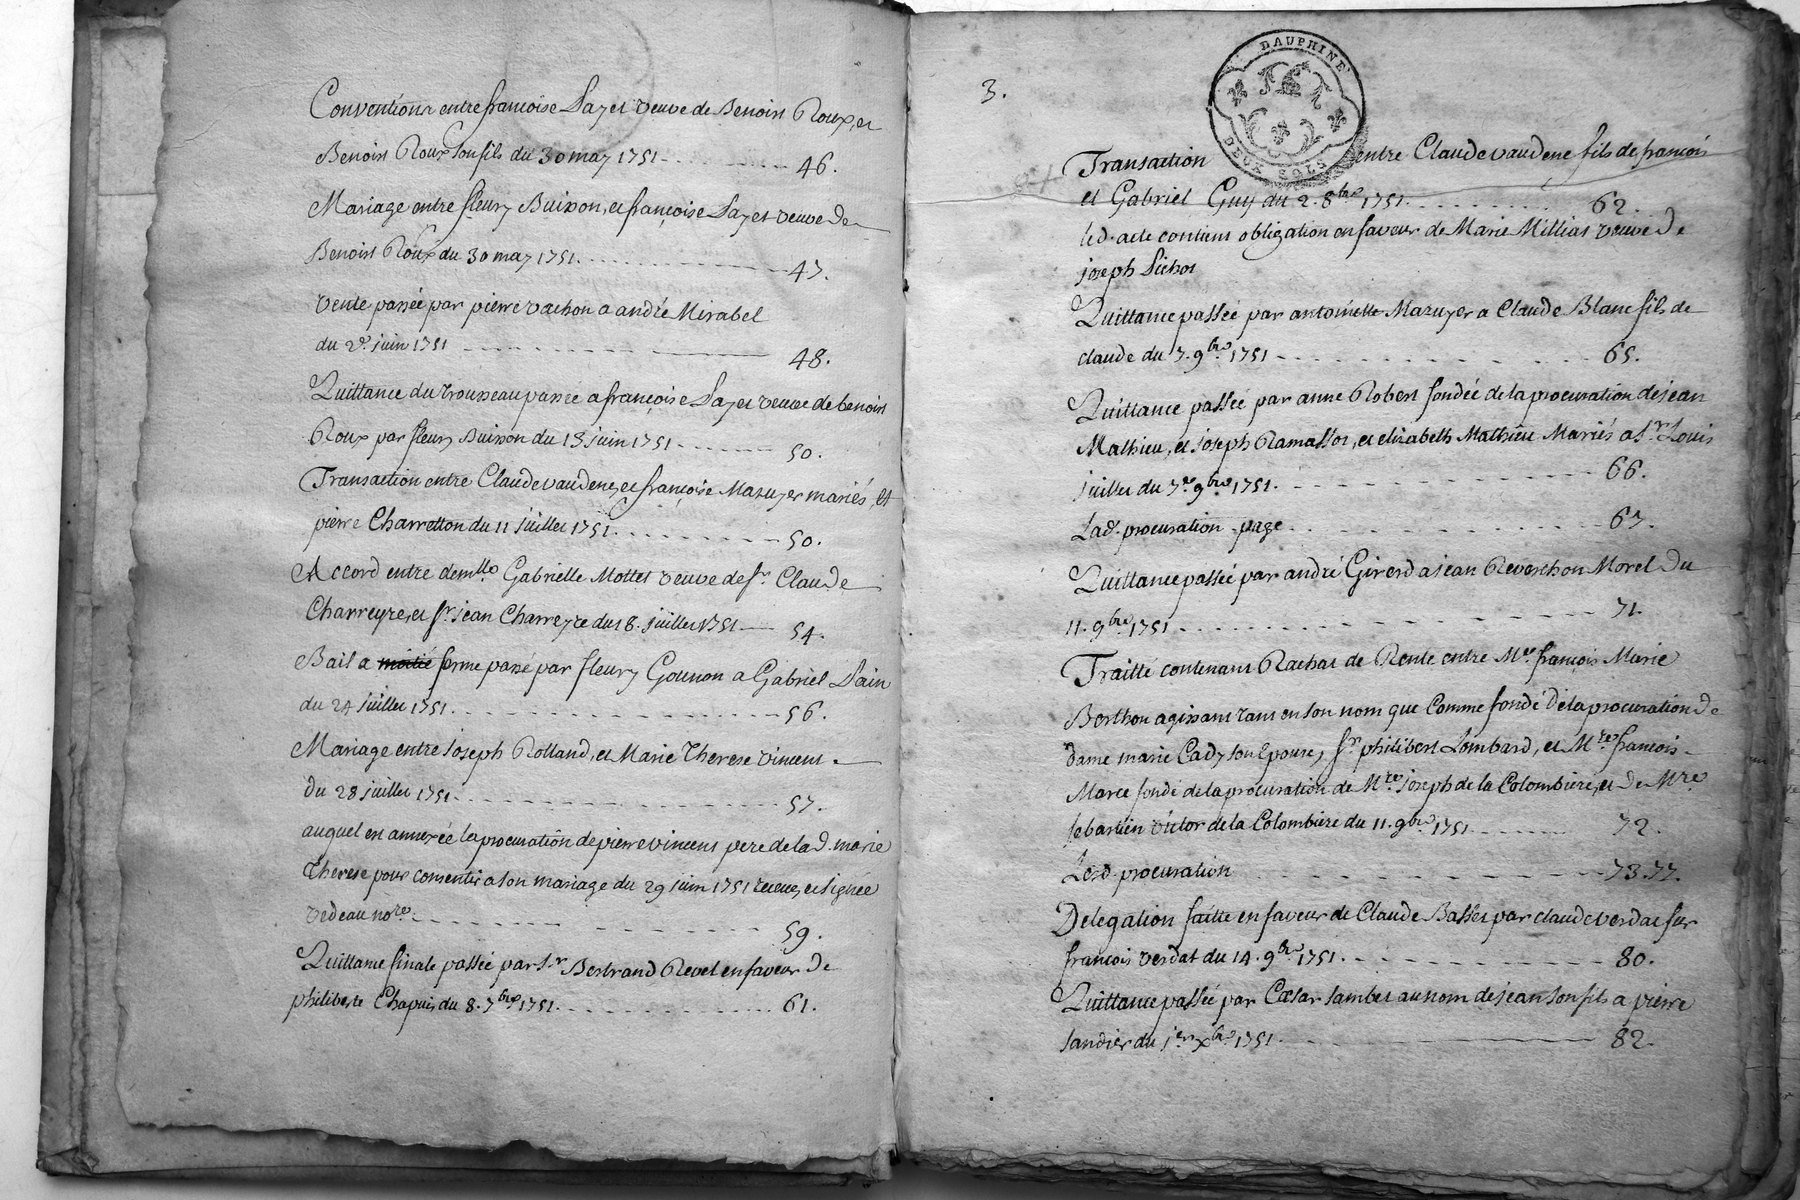 Conventions entre françoise Payet veuve de Benoist Roux, et
Benoist Roux son fils du 30 may 1751 46.
Mariage entre fleury Buisson, et françoise Payet veuve de
Benoist Roux du 30 may 1751. 47.
Vente passée par pierre vachon a andré Mirabel
du 2e. juin 1751 48.
Quittance du trousseau passée a françoise Payet veuve de benoist
Roux par fleury Buisson du 13 juin 1751 50.
Transaction entre Claude vaudene, et françoise Mazuyer mariés, et
pierre Charretton du 11 juillet 1751. 50.
Accord entre demlle Gabrielle Mottet veuve de sr. Claude
Charreyre, et sr. jean Charreyre du 18. juillet 1751 54.
Bail a moitié ferme passé par fleury Gounon a Gabriel Pain
du 24 juillet 1751. 56.
Mariage entre joseph Rolland, et Marie Therese vincent
du 28 juillet 1751. 57.
auquel en annexée la procuration de pierre vincent pere de lad. marie
Therese pour consentir a son mariage du 29 juin 1751 receue, et signée
vedeau nore. 59.
Quittance finale passée par sr Bertrand Revel en faveur de
philiberte Chapuis du 8. 7bre 1751. 61.
3.
DAUPHINE
DEUX SOLS
Transaction entre Claude vaudene fils de francois
et Gabriel Guy du 2. 8bre 1751. 62.
led. acte contient obligation en faveur de Marie Milliat veuve de
joseph Pichot
Quittance passée par antoinette Mazuyer a Claude Blanc fils de
claude du 7. 9bre 1751 65.
Quittance passée par anne Robert fondée de la procuration de jean
Mathieu, et joseph Ramassot, et elizabeth Mathieu Mariés a sr. Louis
juillet du 7e 9bre 1751. 66.
Lad. procuration page 67.
Quittance passée par andré Girerd a jean Reverchon Morel du
11. 9bre 1751 71.
Traitté contenant Rachat de Rente entre Mre. françois Marie
Berthon agissant tant en son nom que comme fondé de la procuration de
dame marie Cady son Epouse, sr. philibert Lombard, et Mre françois
Marce fondé de la procuration de Mre. joseph de la Colombiere, et de Mre.
sebastien victor de la Colombiere du 11. 9bre 1751 72.
Lesd. procuration 73.77.
Delegation faitte en faveur de Claude Basset par claude verdat sur
francois verdat du 14. 9bre 1751. 80.
Quittance passée par Cæsar Jambet au nom de jean son fils a pierre
jandier du 1er xbre 1751. 82.